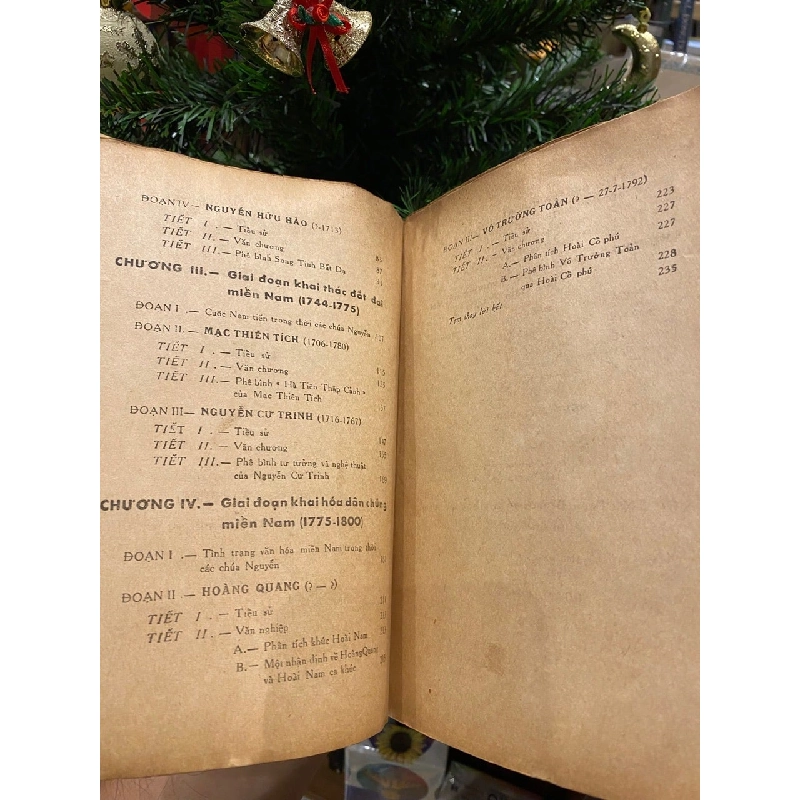 ĐOẠN IV— NGUYỄN HỮU HÀO (?-1713)
TIẾT I .— Tiểu sử
TIẾT II.— Văn chương
TIẾT III.— Phê bình Song Tinh Bất Dạ
CHƯƠNG III.— Giai đoạn khai thác đất đai
miền Nam (1744-1775)
ĐOẠN I .— Cuộc Nam tiến trong thời các chúa Nguyễn
ĐOẠN II.— MẠC THIÊN TÍCH (1706-1780)
TIẾT I .— Tiểu sử
TIẾT II.— Văn chương
TIẾT III.— Phê bình « Hà Tiên Thập Cảnh »
của Mạc Thiên Tích
ĐOẠN III— NGUYỄN CƯ TRINH (1716-1767)
TIẾT I .— Tiểu sử
TIẾT II.— Văn chương
TIẾT III.— Phê bình tư tưởng và nghệ thuật
của Nguyễn Cư Trinh
CHƯƠNG IV.— Giai đoạn khai hóa dân chúng
miền Nam (1775-1800)
ĐOẠN I .— Tình trạng văn hóa miền Nam trong thời
các chúa Nguyễn
ĐOẠN II .— HOÀNG QUANG (? — ?)
TIẾT I .— Tiểu sử
TIẾT II.— Văn nghiệp
A.— Phân tích khúc Hoài Nam
B.— Một nhận định về Hoàng Quang
và Hoài Nam ca khúc
VÕ TRƯỜNG TOẢN (? — 27-7-1792) 223
TIẾT I .— Tiểu sử 227
TIẾT II.— Văn chương 227
A.— Phân tích Hoài Cổ phú
B.— Phê bình Võ Trường Toản 228
qua Hoài Cổ phú 235